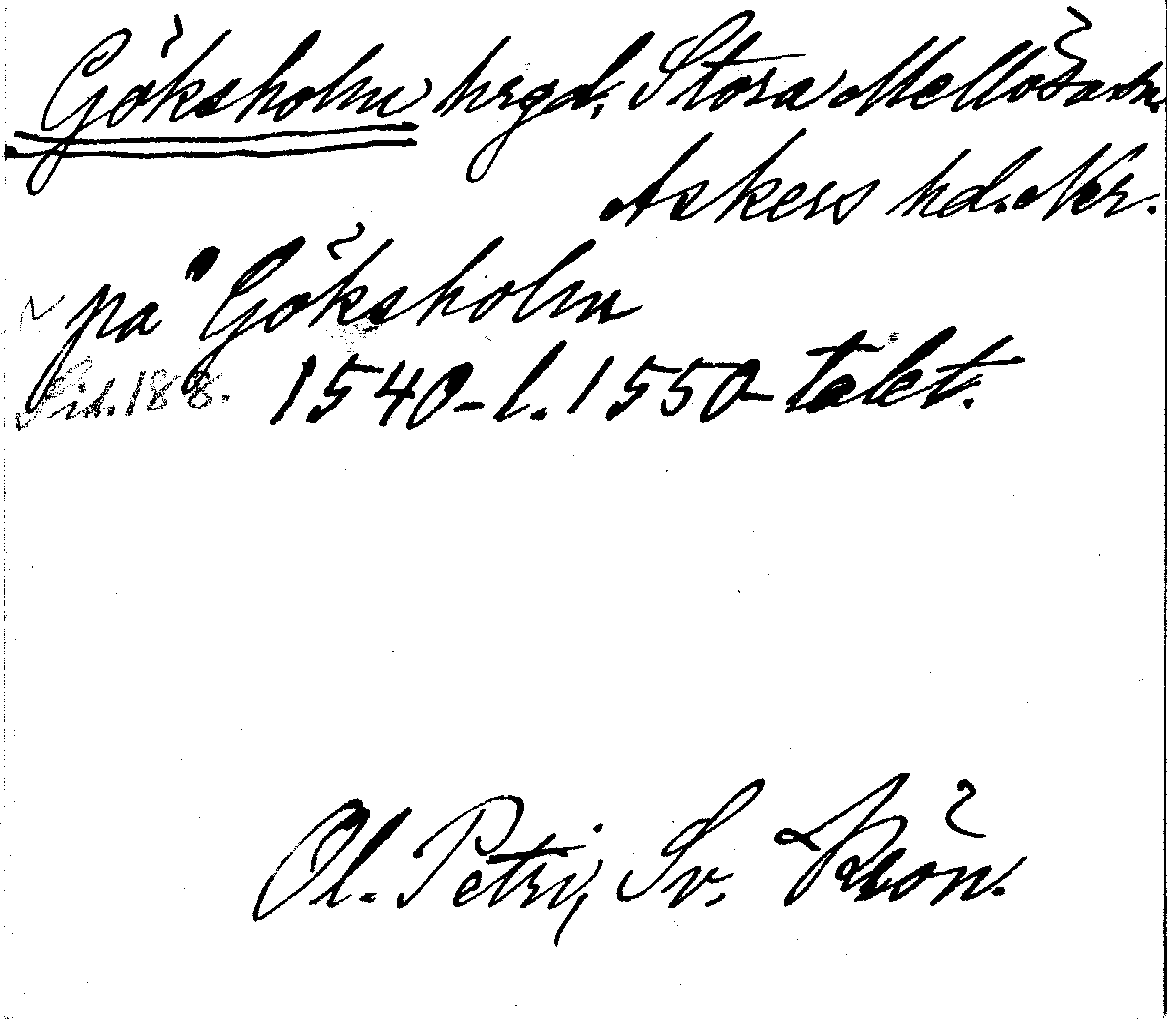 Göksholm hrgd, Stora Mellösa sn.
Askers hd. När.
på Göksholm
Sid. 188. 1540- l. 1550-talet.
Ol. Petri, Sv. Krön.